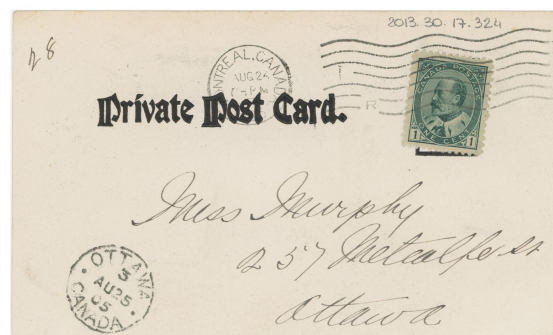 2013.30.17.324
28
MONTREAL, CANADA
AUG 24
PM
CANADA POSTAGE
1 ONE CENT 1
Private Post Card.
Miss Murphy
257 Metcalfe st
Ottawa
OTTAWA
3
AU 25
05
CANADA